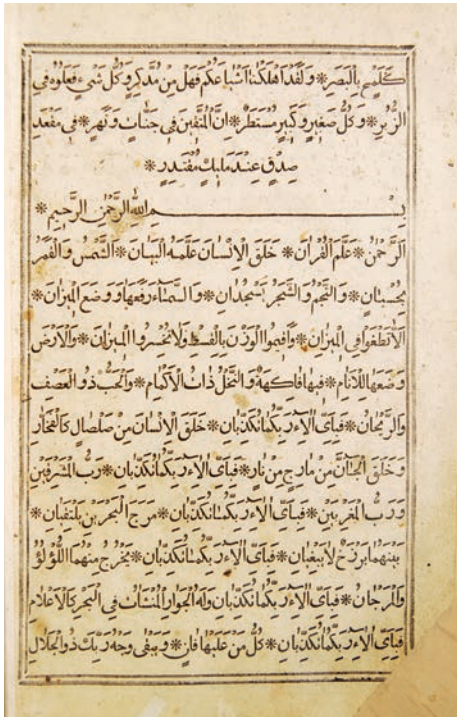 كَلَمْحٍ بِالْبَصَرِ * وَلَقَدْ اَهْلَكْنَا اَشْيَاعَكُمْ فَهَلْ مِنْ مُدَّكِرٍ وَكُلُّ شَيْءٍ فَعَلُوهُ فِي
الزُّبُرِ * وَكُلُّ صَغِيرٍ وَكَبِيرٍ مُسْتَطَرٌ * اِنَّ الْمُتَّقِينَ فِي جَنَّاتٍ وَنَهَرٍ * فِي مَقْعَدِ
صِدْقٍ عِنْدَ مَلِيكٍ مُقْتَدِرٍ *
بِسْمِ اللهِ الرَّحْمٰنِ الرَّحِيمِ *
اَلرَّحْمٰنُ * عَلَّمَ الْقُرْاٰنَ * خَلَقَ الْاِنْسَانَ عَلَّمَهُ الْبَيَانَ * اَلشَّمْسُ وَالْقَمَرُ
بِحُسْبَانٍ * وَالنَّجْمُ وَالشَّجَرُ يَسْجُدَانِ * وَالسَّمَاءَ رَفَعَهَا وَوَضَعَ الْمِيزَانَ *
اَلَّا تَطْغَوْا فِي الْمِيزَانِ * وَاَقِيمُوا الْوَزْنَ بِالْقِسْطِ وَلَا تُخْسِرُوا الْمِيزَانَ * وَالْاَرْضَ
وَضَعَهَا لِلْاَنَامِ * فِيهَا فَاكِهَةٌ وَالنَّخْلُ ذَاتُ الْاَكْمَامِ * وَالْحَبُّ ذُو الْعَصْفِ
وَالرَّيْحَانُ * فَبِاَيِّ اٰلَاءِ رَبِّكُمَا تُكَذِّبَانِ * خَلَقَ الْاِنْسَانَ مِنْ صَلْصَالٍ كَالْفَخَّارِ
وَخَلَقَ الْجَانَّ مِنْ مَارِجٍ مِنْ نَارٍ * فَبِاَيِّ اٰلَاءِ رَبِّكُمَا تُكَذِّبَانِ * رَبُّ الْمَشْرِقَيْنِ
وَرَبُّ الْمَغْرِبَيْنِ * فَبِاَيِّ اٰلَاءِ رَبِّكُمَا تُكَذِّبَانِ * مَرَجَ الْبَحْرَيْنِ يَلْتَقِيَانِ *
بَيْنَهُمَا بَرْزَخٌ لَا يَبْغِيَانِ * فَبِاَيِّ اٰلَاءِ رَبِّكُمَا تُكَذِّبَانِ * يَخْرُجُ مِنْهُمَا اللُّؤْلُؤُ
وَالْمَرْجَانُ * فَبِاَيِّ اٰلَاءِ رَبِّكُمَا تُكَذِّبَانِ وَلَهُ الْجَوَارِ الْمُنْشَاٰتُ فِي الْبَحْرِ كَالْاَعْلَامِ
فَبِاَيِّ اٰلَاءِ رَبِّكُمَا تُكَذِّبَانِ * كُلُّ مَنْ عَلَيْهَا فَانٍ * وَيَبْقٰى وَجْهُ رَبِّكَ ذُو الْجَلَالِ